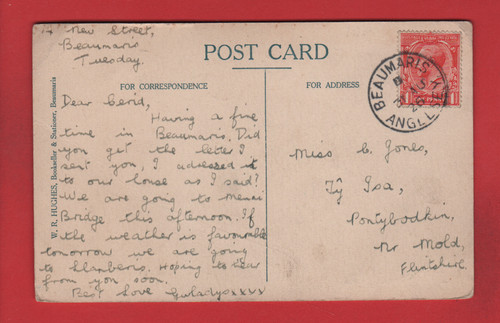 New Street,
Beaumaris
Tuesday.
POST CARD
FOR CORRESPONDENCE
FOR ADDRESS
W. R. HUGHES, Bookseller & Stationer, Beaumaris
BEAUMARIS
ANGLESEY
Dear Cerid,
Having a fine
time in Beaumaris. Did
you get the letter I
sent you, I adressed it
to our house as I said?
We are going to Menai
Bridge this afternoon. If
the weather is favourable
tomorrow we are going
to Llanberis. Hoping to hear
from you soon.
Best love Gwladys xxxx
Miss C. Jones,
Tŷ Isa,
Pontybodkin,
Nr Mold,
Flintshire.